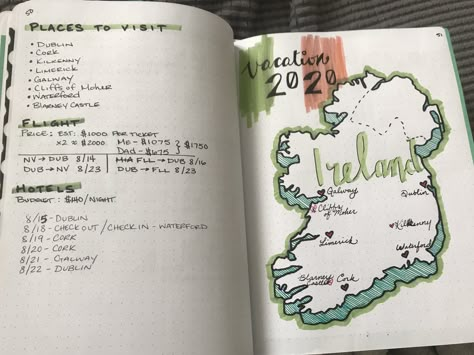 50
PLACES TO VISIT
• DUBLIN
• CORK
• KILKENNY
• LIMERICK
• GALWAY
• CLIFFS OF MOHER
• WATERFORD
• BLARNEY CASTLE
FLIGHT
PRICE: EST: $1000 PER TICKET
x2 = $2000
ME - $1075
DAD - $675
} $1750
NV → DUB 8/14
DUB → NV 8/23
MIA FLL → DUB 8/16
DUB → FLL 8/23
HOTELS
BUDGET: $140/NIGHT
8/15 - DUBLIN
8/18 - CHECK OUT / CHECK IN - WATERFORD
8/19 - CORK
8/20 - CORK
8/21 - GALWAY
8/22 - DUBLIN
51
Vacation
2020
Ireland
Galway
Dublin
Cliffs
of Moher
Kilkenny
Limerick
Waterford
Blarney
Castle
Cork